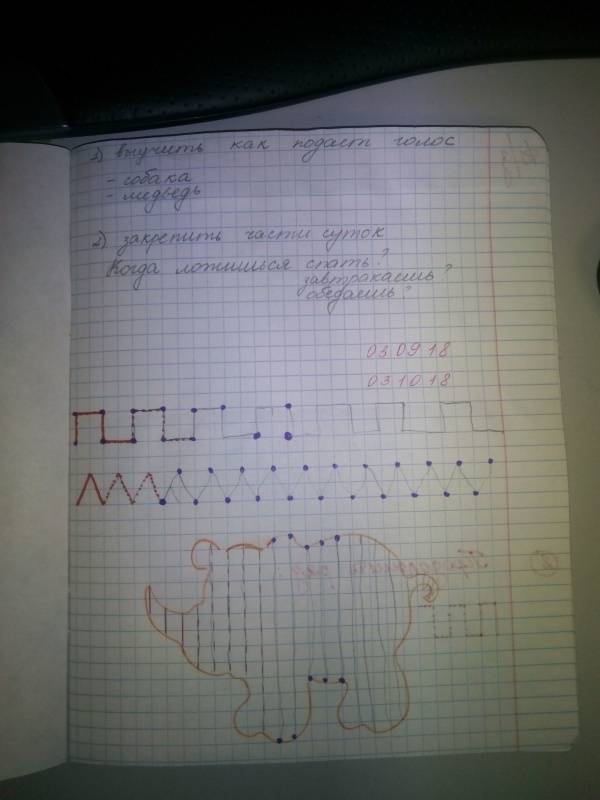 1) выучить как подаст голос
- собака
- медведь
2) закрепить части суток
Когда ложишься спать?
завтракаешь?
обедаешь?
03.09.18
03.10.18